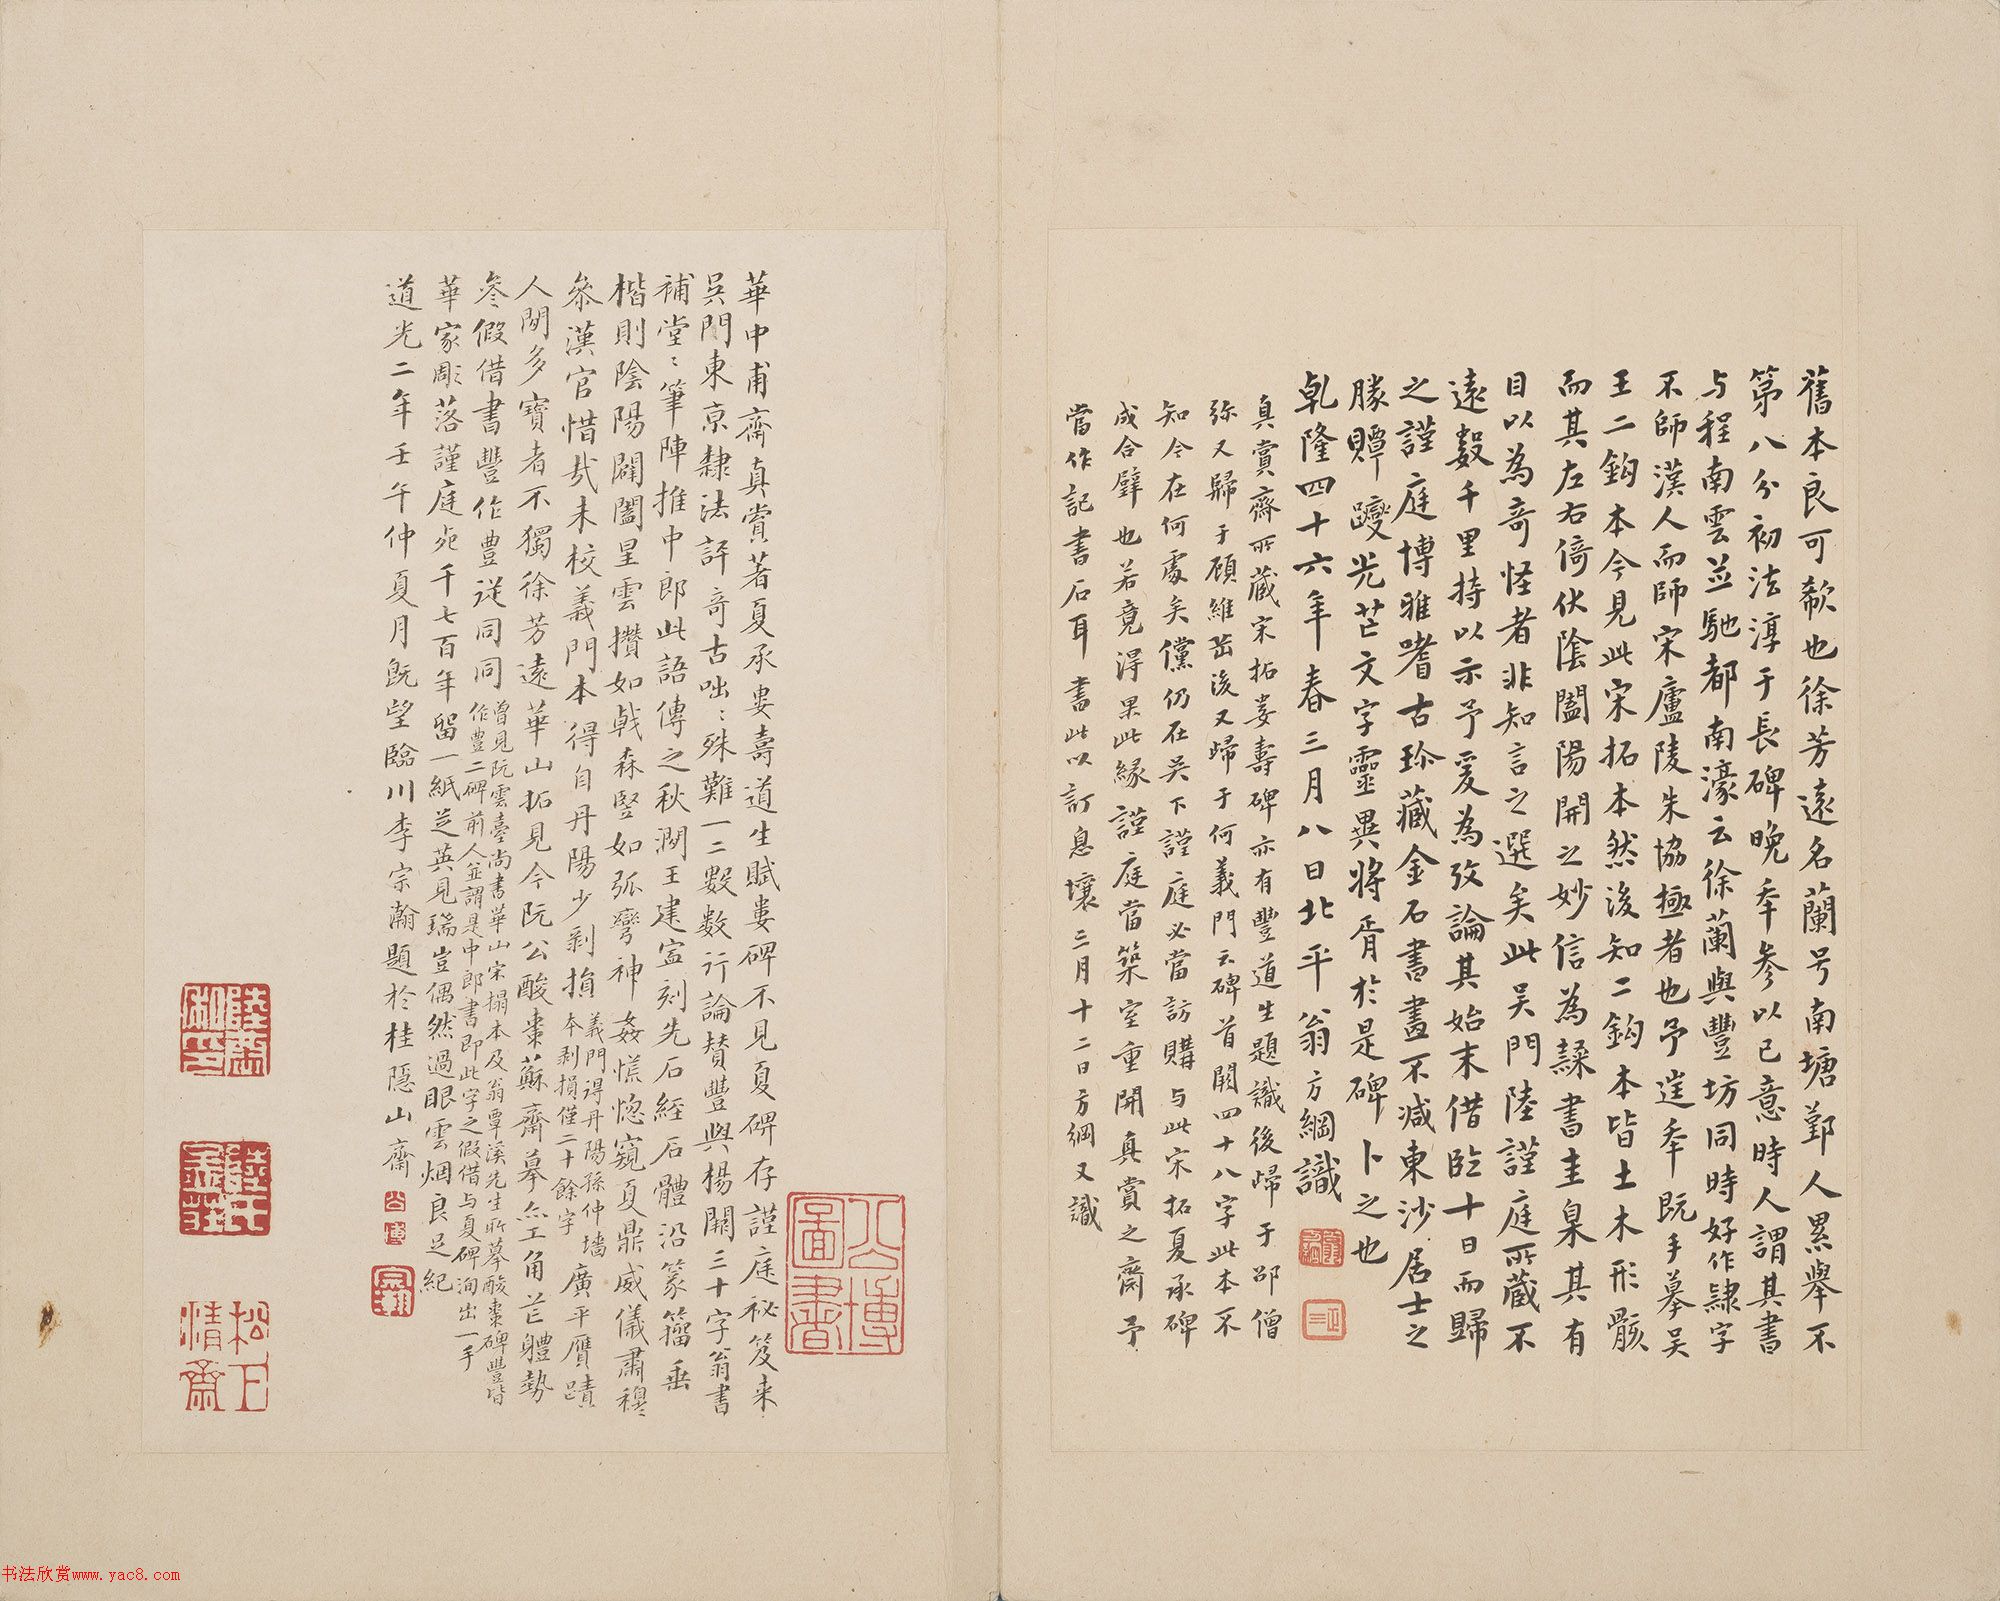 舊本良可欷也徐芳遠名蘭号南塘鄞人累舉不
第八分初法淳于長碑晚年参以己意時人謂其書
与程南雲並馳都南濠云徐蘭與豐坊同時好作隸字
不師漢人而師宋廬陵朱協極者也予逞年既手摹吴
王二鈎本今見此宋拓本然後知二鈎本皆土木形骸
而其左右倚伏陰闔陽開之妙信為隸書圭臬其有
目以為竒怪者非知言之選矣此吴門陸謹庭所蔵不
遠數千里持以示予爰為攷論其始末借臨十日而歸
之謹庭博雅嗜古珎藏金石書畫不減東沙居士之
賸贉躞光芒文字靈異將胥於是碑卜之也
乹隆四十六年春三月八日北平翁方綱識
真賞齋所蔵宋拓婁壽碑亦有豐道生題識後歸于邵僧
弥又歸于顧維岳後又歸于何義門云碑首闕四十八字此本不
知今在何處矣儻仍在吴下謹庭必當訪購与此宋拓夏承碑
成合璧也若竟得果此緣謹庭當築室重開真賞之齋予
當作記書石耳 書此以訂息壤三月十二日方綱又識
華中甫齋真賞著夏承婁壽道生賦婁碑不見夏碑存謹庭祕笈来
吴門東京隸法評竒古咄〻殊難一二數數行論賛豐與楊闕三十字翁書
補堂〻筆陣推中郎此語傳之秋澗王建寍刻先石經石體沿篆籀垂
楷則陰陽闢闔星雲攢如戟森竪如弧彎神姦慌惚窺夏鼎威儀肅穆
叅漢官惜㢤未校義門本得自丹陽少剥損義門得丹陽孫仲墻本剥損僅二十餘字廣平贋蹟
人間多寶者不獨徐芳遠華山拓見今阮公酸棗蘇齋摹亦工角芒體勢
叅假借書豐作豊従同同曾見阮雲臺尚書華山宋搨本及翁覃溪先生所摹酸棗碑豐皆作豊二碑前人並謂是中郎書即此字之假借与夏碑洵出一手
華家彫落謹庭宛千七百年留一紙芝英見瑞豈偶然過眼雲烟良足紀
道光二年壬午仲夏月既望臨川李宗瀚題於桂隱山齋
公博
公博圖書
松下清齋
书法欣赏www.yac8.com